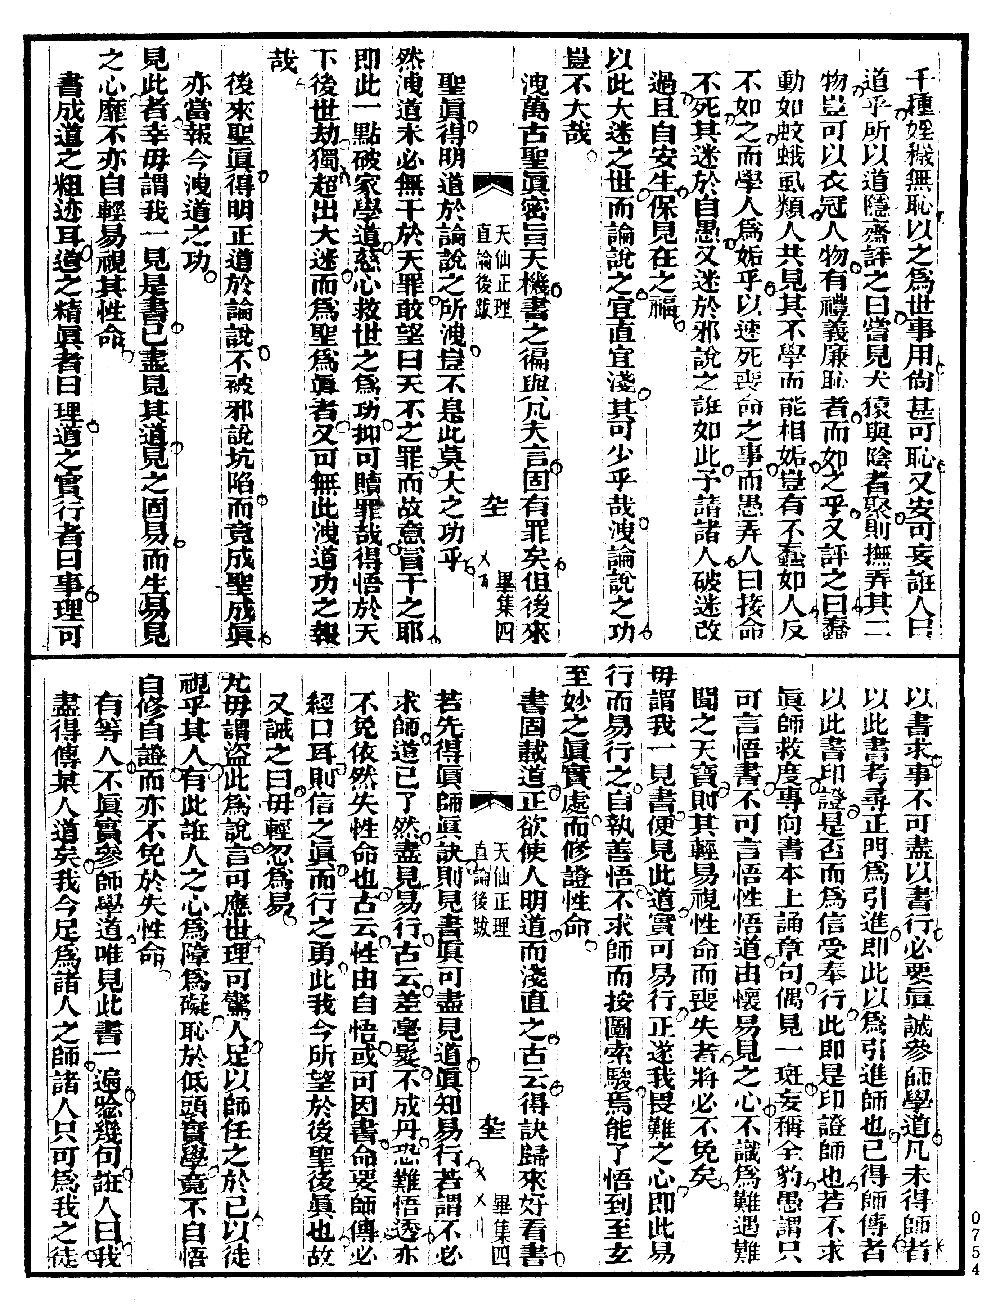 千種婬穢無恥以之為世事用尙甚可恥又安可妄誑人曰
道乎所以道隱齋評之曰嘗見犬猿與陰者聚則撫弄其二
物豈可以衣冠人物有禮義廉恥者而如之乎又評之曰蠢
動如蚊蛾虱類人共見其不學而能相姤豈有不蠢如人反
不如之而學人為姤乎以速死喪命之事而愚弄人曰接命
不死其迷於自愚又迷於邪說之誑如此予請諸人破迷改
過且自安生保見在之福
以此大迷之世而論說之宜直宜淺其可少乎哉洩論說之功
豈不大哉
洩萬古聖眞密旨天機書之徧與凡夫言固有罪矣但後來
天仙正理
直論後跋
卆
畢集四
聖眞得明道於論說之所洩豈不是此莫大之功乎
然洩道未必無干於天罪敢望曰天不之罪而故意冒干之耶
即此一點破家學道慈心救世之為功抑可贖罪哉得悟於天
下後世劫獨超出大迷而為聖為眞者又可無此洩道功之報
哉
後來聖眞得明正道於論說不被邪說坑陷而竟成聖成眞
亦當報今洩道之功
見此者幸毋謂我一見是書已盡見其道見之固易而生易見
之心靡不亦自輕易視其性命
書成道之粗迹耳道之精眞者曰理道之實行者曰事理可
以書求事不可盡以書行必要眞誠參師學道凡未得師者
以此書考尋正門為引進即此以為引進師也已得師傳者
以此書印證是否而為信受奉行此即是印證師也若不求
眞師救度專向書本上誦章句偶見一斑妄稱全豹愚謂只
可言悟書不可言悟性悟道由懷易見之心不識為難遇難
聞之天寶則其輕易視性命而喪失者將必不免矣
毋謂我一見書便見此道實可易行正遂我畏難之心即此易
行而易行之自執善悟不求師而按圖索駿焉能了悟到至玄
至妙之眞實處而修證性命
書固載道正欲使人明道而淺直之古云得訣歸來好看書
天仙正理
直論後跋
卆
畢集四
若先得眞師眞訣則見書眞可盡見道眞知易行若謂不必
求師道已了然盡見易行古云差毫髮不成丹恐難悟透亦
不免依然失性命也古云性由自悟或可因書命要師傳必
經口耳則信之眞而行之勇此我今所望於後聖後眞也故
又誡之曰毋輕忽為易
尤毋謂盜此為說言可應世理可驚人足以師任之於己以徒
視乎其人有此誑人之心為障為礙恥於低頭實學竟不自悟
自修自證而亦不免於失性命
有等人不眞實參師學道唯見此書一遍唸幾句誑人曰我
盡得傳某人道矣我今足為諸人之師諸人只可為我之徒
0754